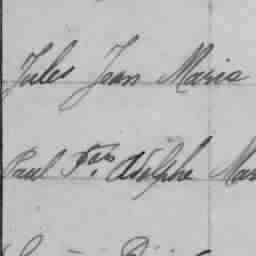 Jules Jean Maria
Paul Fçois Adolphe Mar